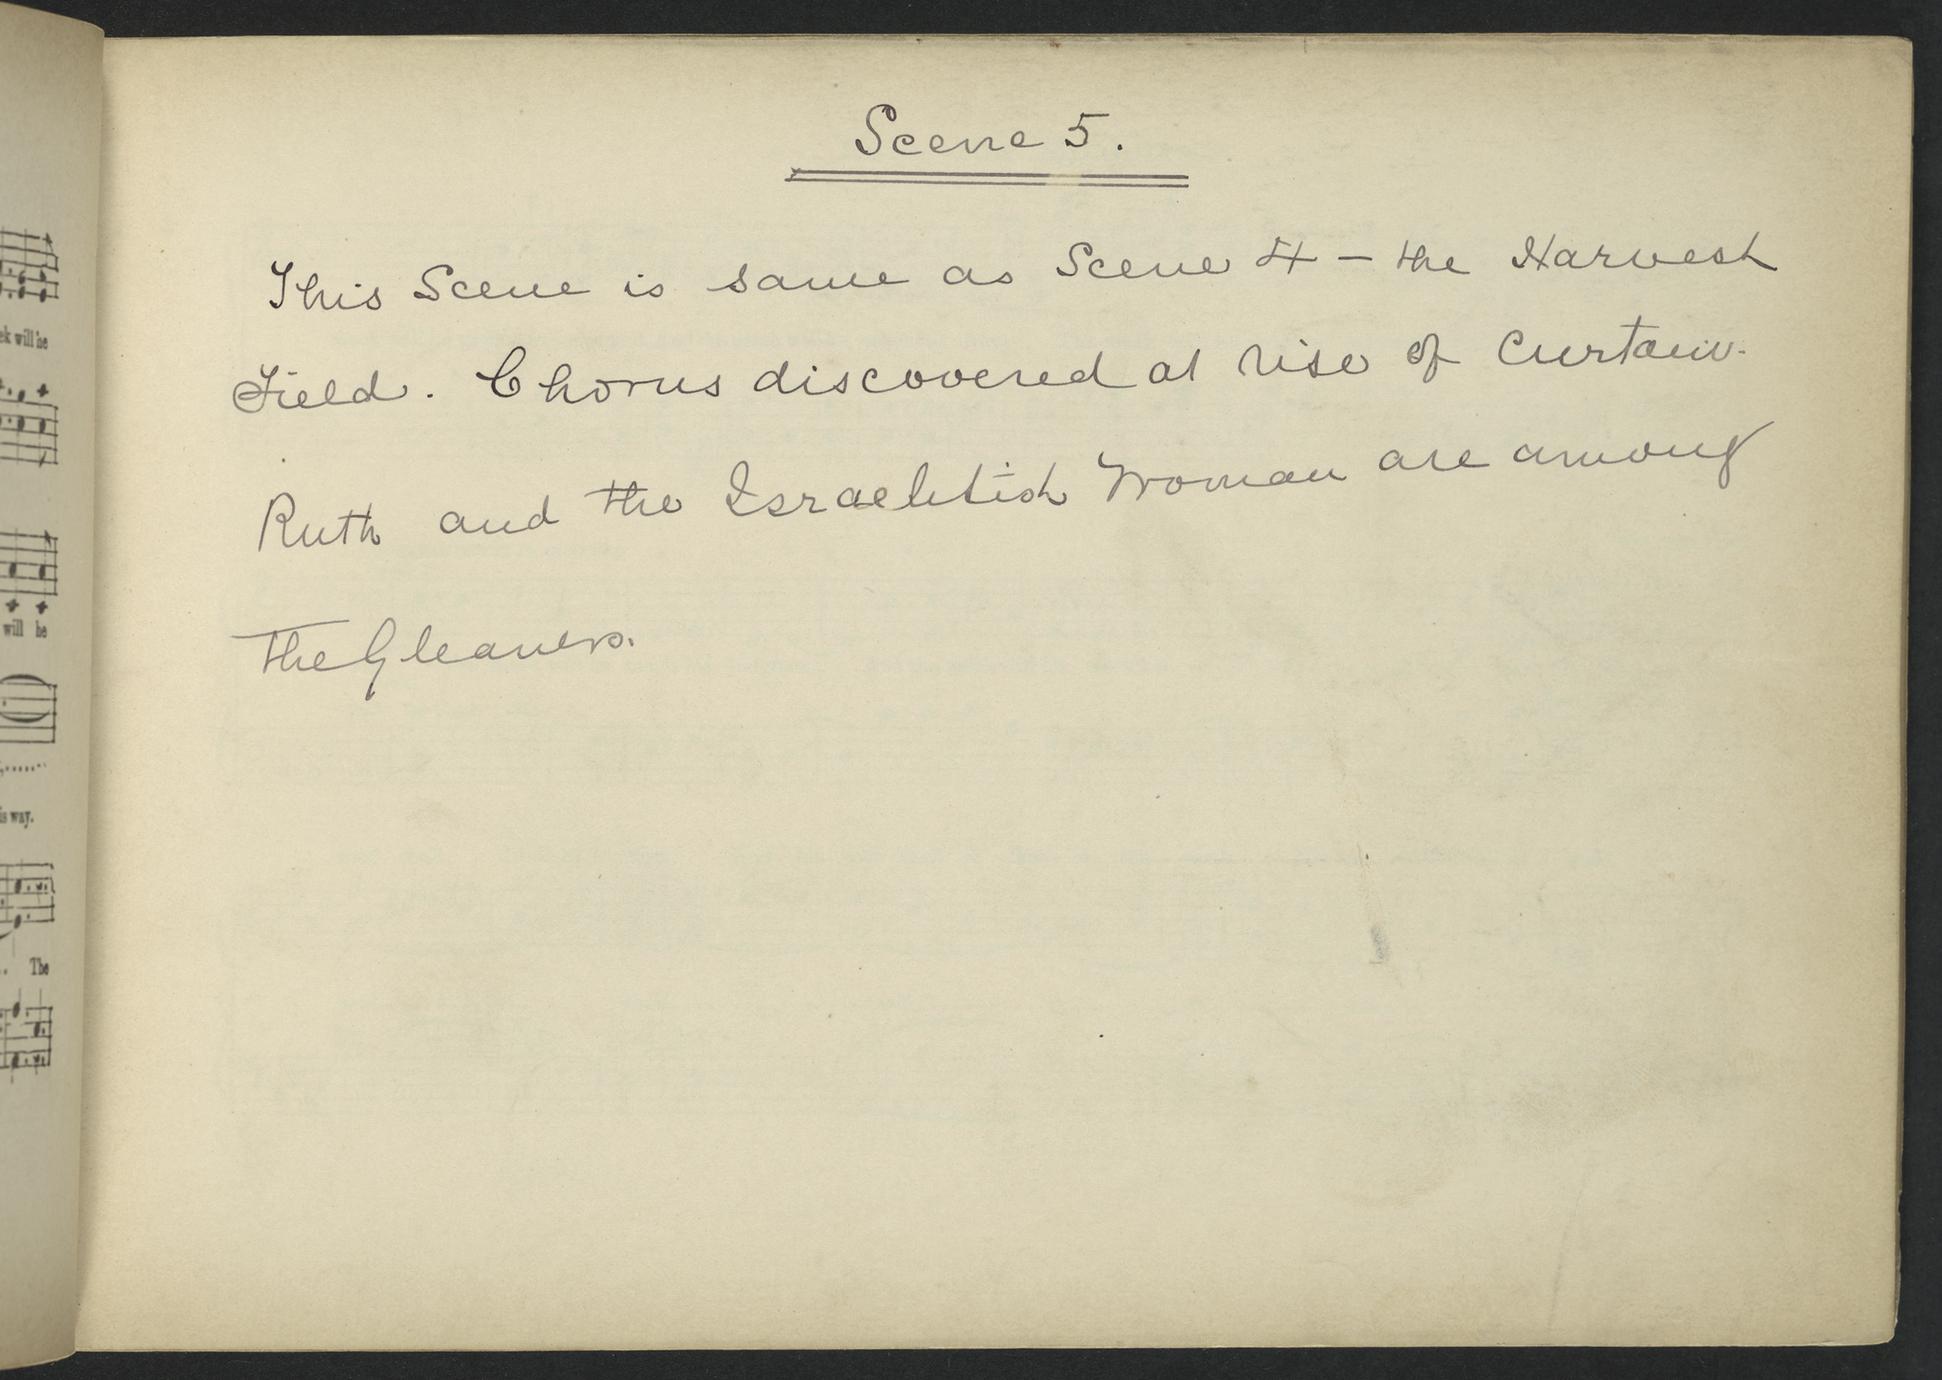 Scene 5.
This Scene is same as Scene 4 – the Harvest
Field. Chorus discovered at rise of Curtain.
Ruth and the Israelitish Woman are among
the Gleaners.
will he
will he
is way.
The